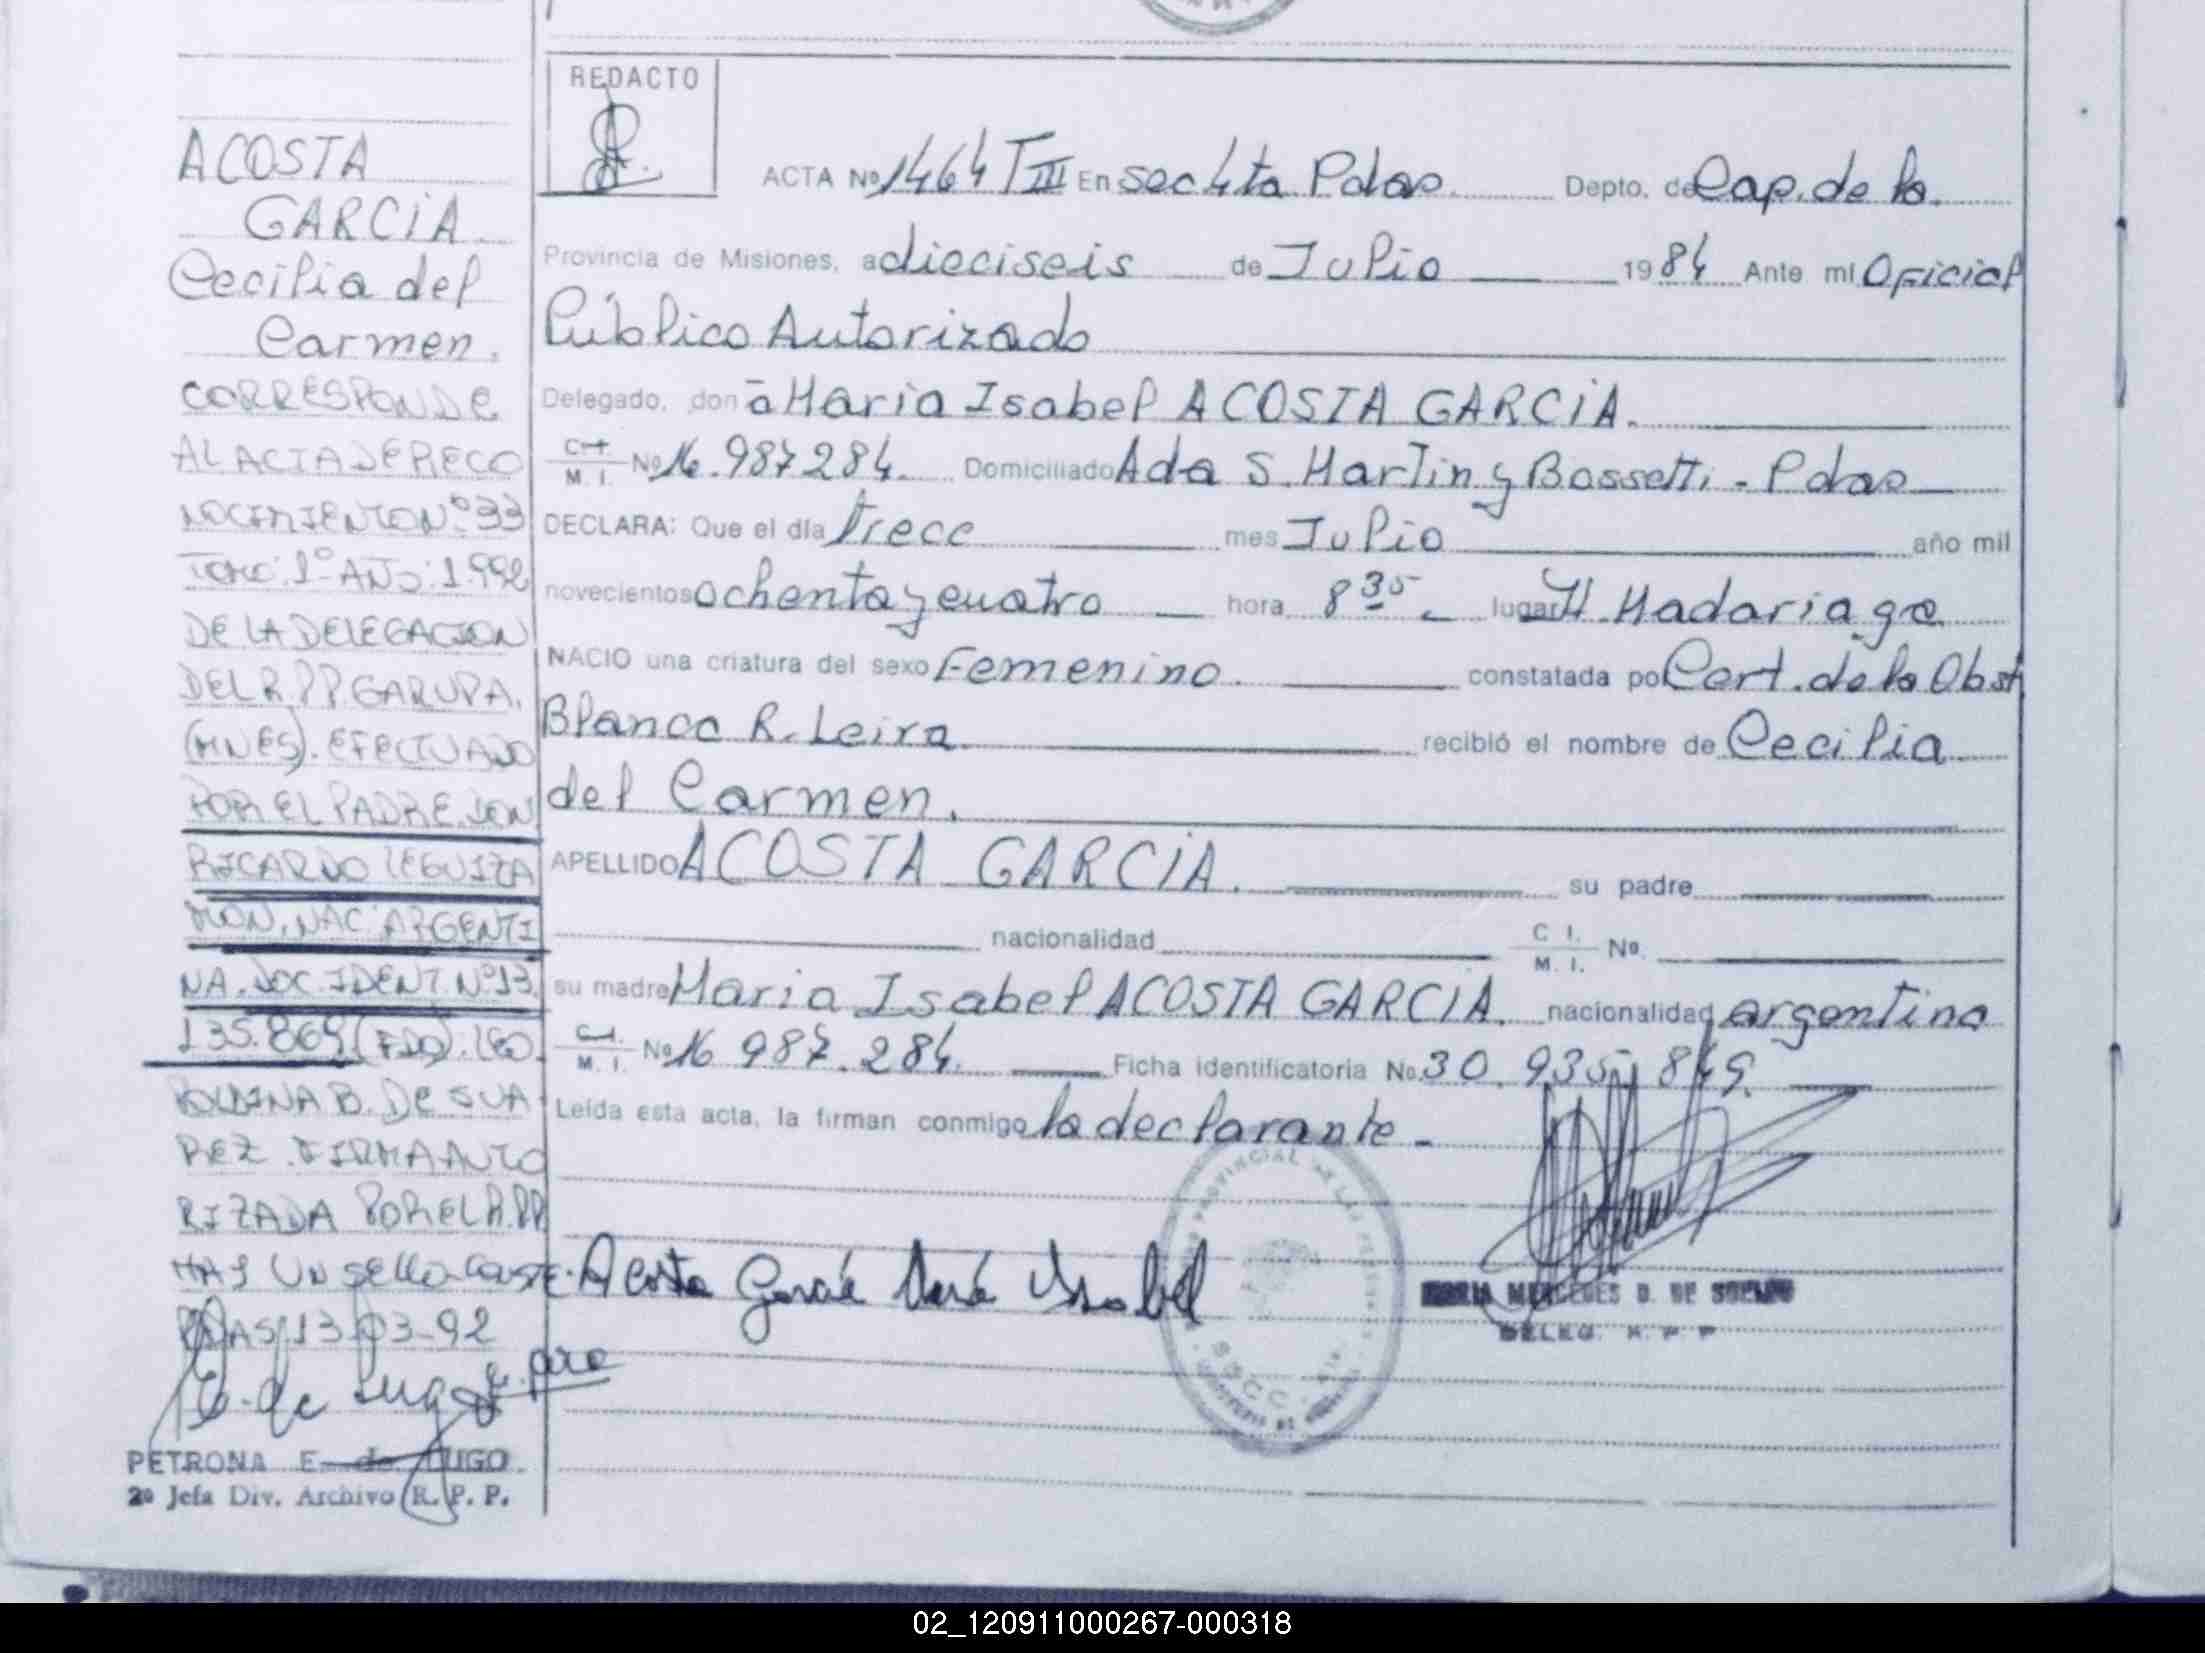 ACOSTA
GARCIA
Cecilia del
Carmen.
CORRESPONDE
AL ACTA DE RECO
NOCIMIENTO Nº 33
TOMO: 1º AÑO: 1.992
DE LA DELEGACION
DEL R.P.P. GARUPA.
(MNES). EFECTUADO
POR EL PADRE. DON
RICARDO LEGUIZA
MON. NAC. ARGENTI
NA. DOC. IDENT. Nº 13.
135.869 (FDO). LEO
POLDINA B. DE SUA
REZ. FIRMA AUTO
RIZADA POR EL R.PP
HAY UN SELLO CONSTE.
PDAS, 13-03-92
E. de Lugo
PETRONA E. de LUGO
2º Jefa Div. Archivo R. P. P.
REDACTO
ACTA Nº 1464 T III En secc 4ta Pdas. Depto. de Cap. de la
Provincia de Misiones, a dieciseis de Julio 1984 Ante mí Oficial
Público Autorizado
Delegado, don a Maria Isabel ACOSTA GARCIA.
C.I. M. I. Nº 16.987284. Domiciliado Ada S. Martin y Bossetti - Pdas
DECLARA: Que el día trece mes Julio año mil
novecientos ochenta y cuatro hora 8 35 lugar H. Madariaga
NACIO una criatura del sexo Femenino. constatada po Cert. de la Obst
Blanca R. Leira recibió el nombre de Cecilia
del Carmen.
APELLIDO ACOSTA GARCIA. su padre
nacionalidad C I. M. I. Nº.
su madre Maria Isabel ACOSTA GARCIA. nacionalidad argentina
C.I. M. I. Nº 16 987.284. Ficha identificatoria No. 30.935.849.
Leída esta acta, la firman conmigo la declarante -
Acosta García María Isabel
MARIA MERCEDES D. DE
DELEG. R P P
PROVINCIAL DE LAS PERSONAS
02_120911000267-000318